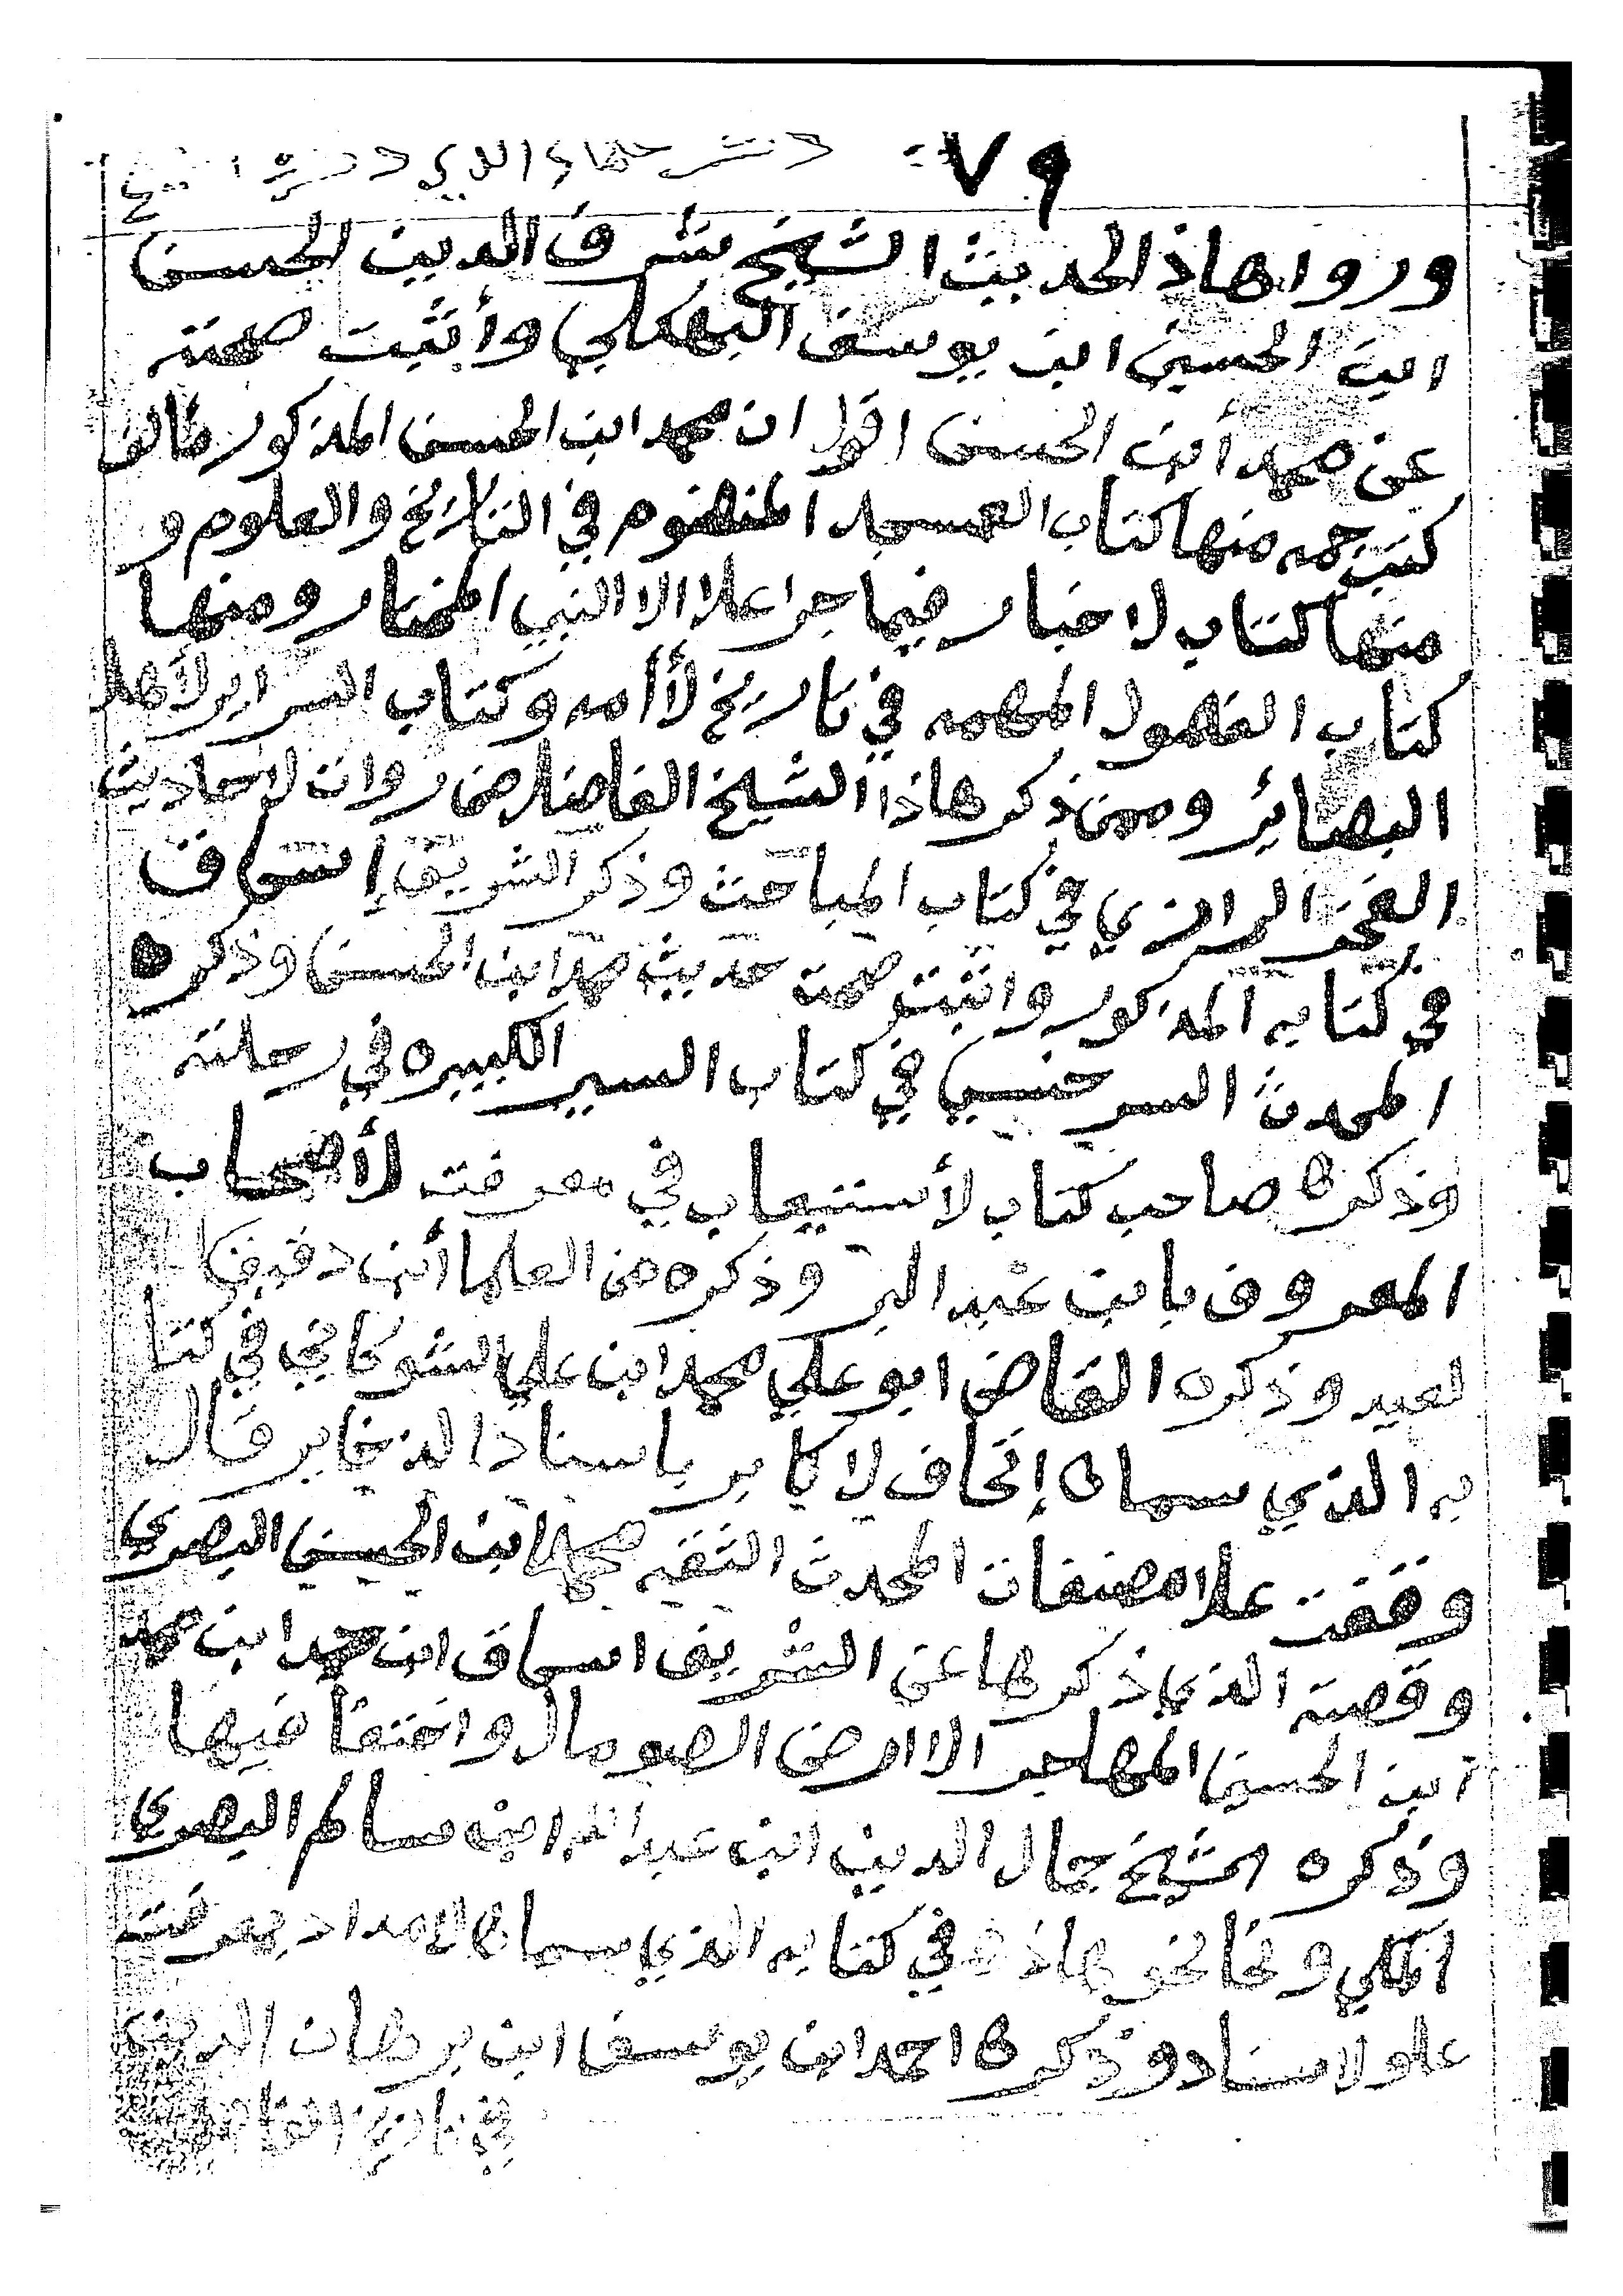 ٧٩
وروا هاذ الحديث الشيخ شرف الدين الحسن
ابن الحسين ابن يوسف البهكلي وأثبت صحته
عن محمد أبن الحسن اقول ان محمد ابن الحسن المذكور
كتب جمه منها كتاب العسجد المنضوم في التاريخ والعلوم و
منها كتاب لاخبار فيما جرا علا الا النبي المختار ومنها
كتاب الفصول المهمه في تاريخ لأامه وكتاب السراير لأهل
البصائر وممن ذكر هاذا الشيخ الفاضل من روات لاحاديث
الفخر الرازي في كتاب المباحث وذكر الشريف إسحاق
في كتابه المذكور واثبت صحت حديث محمد ابن الحسن وذكره
المحدث السرخسي في كتاب السير الكبيره في رحلته
وذكرة صاحب كتاب لأستيعاب في معرفت لأصحاب
المعروف بابن عبد البر وذكره من العلما أبن دقيق
لعيد وذكره القاضي ابو علي محمد ابن علي الشوكاني في كتا
به الذي سماة إتحاف لاكابر باسناد الدفاتر قال
وقفت علا مصنفات المحدث الثقه محمد ابن الحسن البصري
وقصة الذي ذكرها عن الشريف اسحاق ابن محمد ابن محمد
ابن الحسين المهاجر الا ارض الصومال واختفا فيها
وذكره الشيخ جمال الدين ابن عبد الله ابن سالم البصري
المكي ونحا نحو هاذ في كتابه الذي سماة الامداد بمعرفت
علو لاسناد وذكرة احمد ابن يوسف ابن برهان الدين
في تاريخ